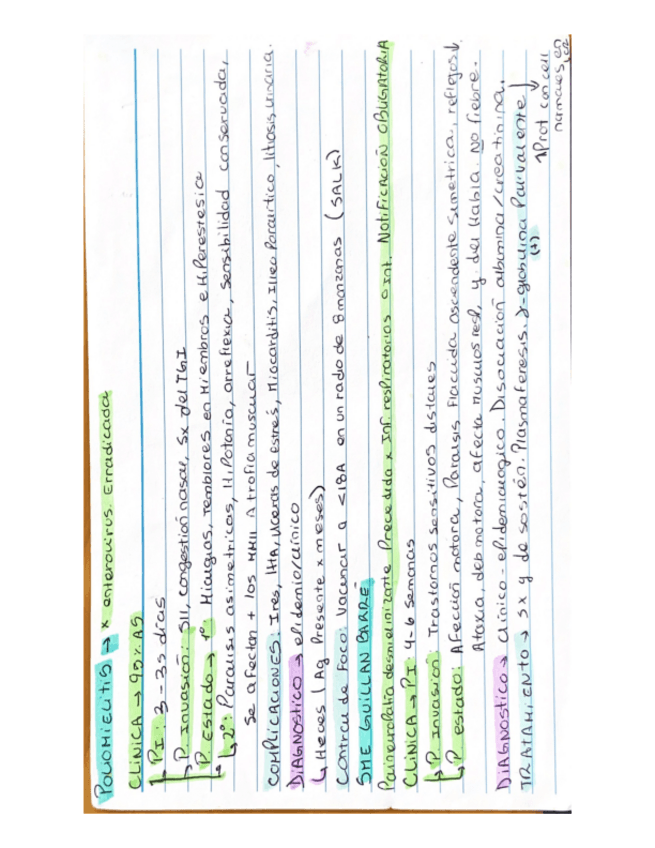 POLIOMIELITIS → x enterovirus. Erradicada
CLINICA → 95% AS
↳ PI: 3-35 días
↳ P. Invasión: SII, congestión nasal, Sx del TGI
↳ P. Estado → 1º: Mialgias, Temblores en Miembros e H.Perestesia
↳ 2º: Paralisis asimetricas, H.Potonia, arreflexia, sensibilidad conservada,
se afectan + los MMII Atrofia muscular
COMPLICACIONES: Ires, HTA, ulceras de estres, Miocarditis, Illeo Paralitico, litiosis urinaria.
DIAGNOSTICO → epidemio/clinico
↳ Heces (Ag Presente x meses)
Control de Foco: Vacunar a <18A en un radio de 8 manzanas (SALK)
SME GUILLAN BARRE
Polineuropatía desmielinizante Precedida x Inf. respiratorias o Int. NOTIFICACION OBLIGATORIA
CLINICA → PI: 4-6 semanas
↳ P. Invasión: Trastornos sensitivos distales
↳ P. estado: Afección motora, Paralisis Flaccida ascendente simetrica, reflejos↓.
Ataxia, deb motora, afecta musculos resp, y del Habla. No fiebre.
DIAGNOSTICO → clinico-epidemiologico. Disociación albumina/creatinina.
TRATAMIENTO → Sx y de sostén. Plasmaferesis. γ-globulina Parvalente
(+)
↑Prot con cell
normales en LCR